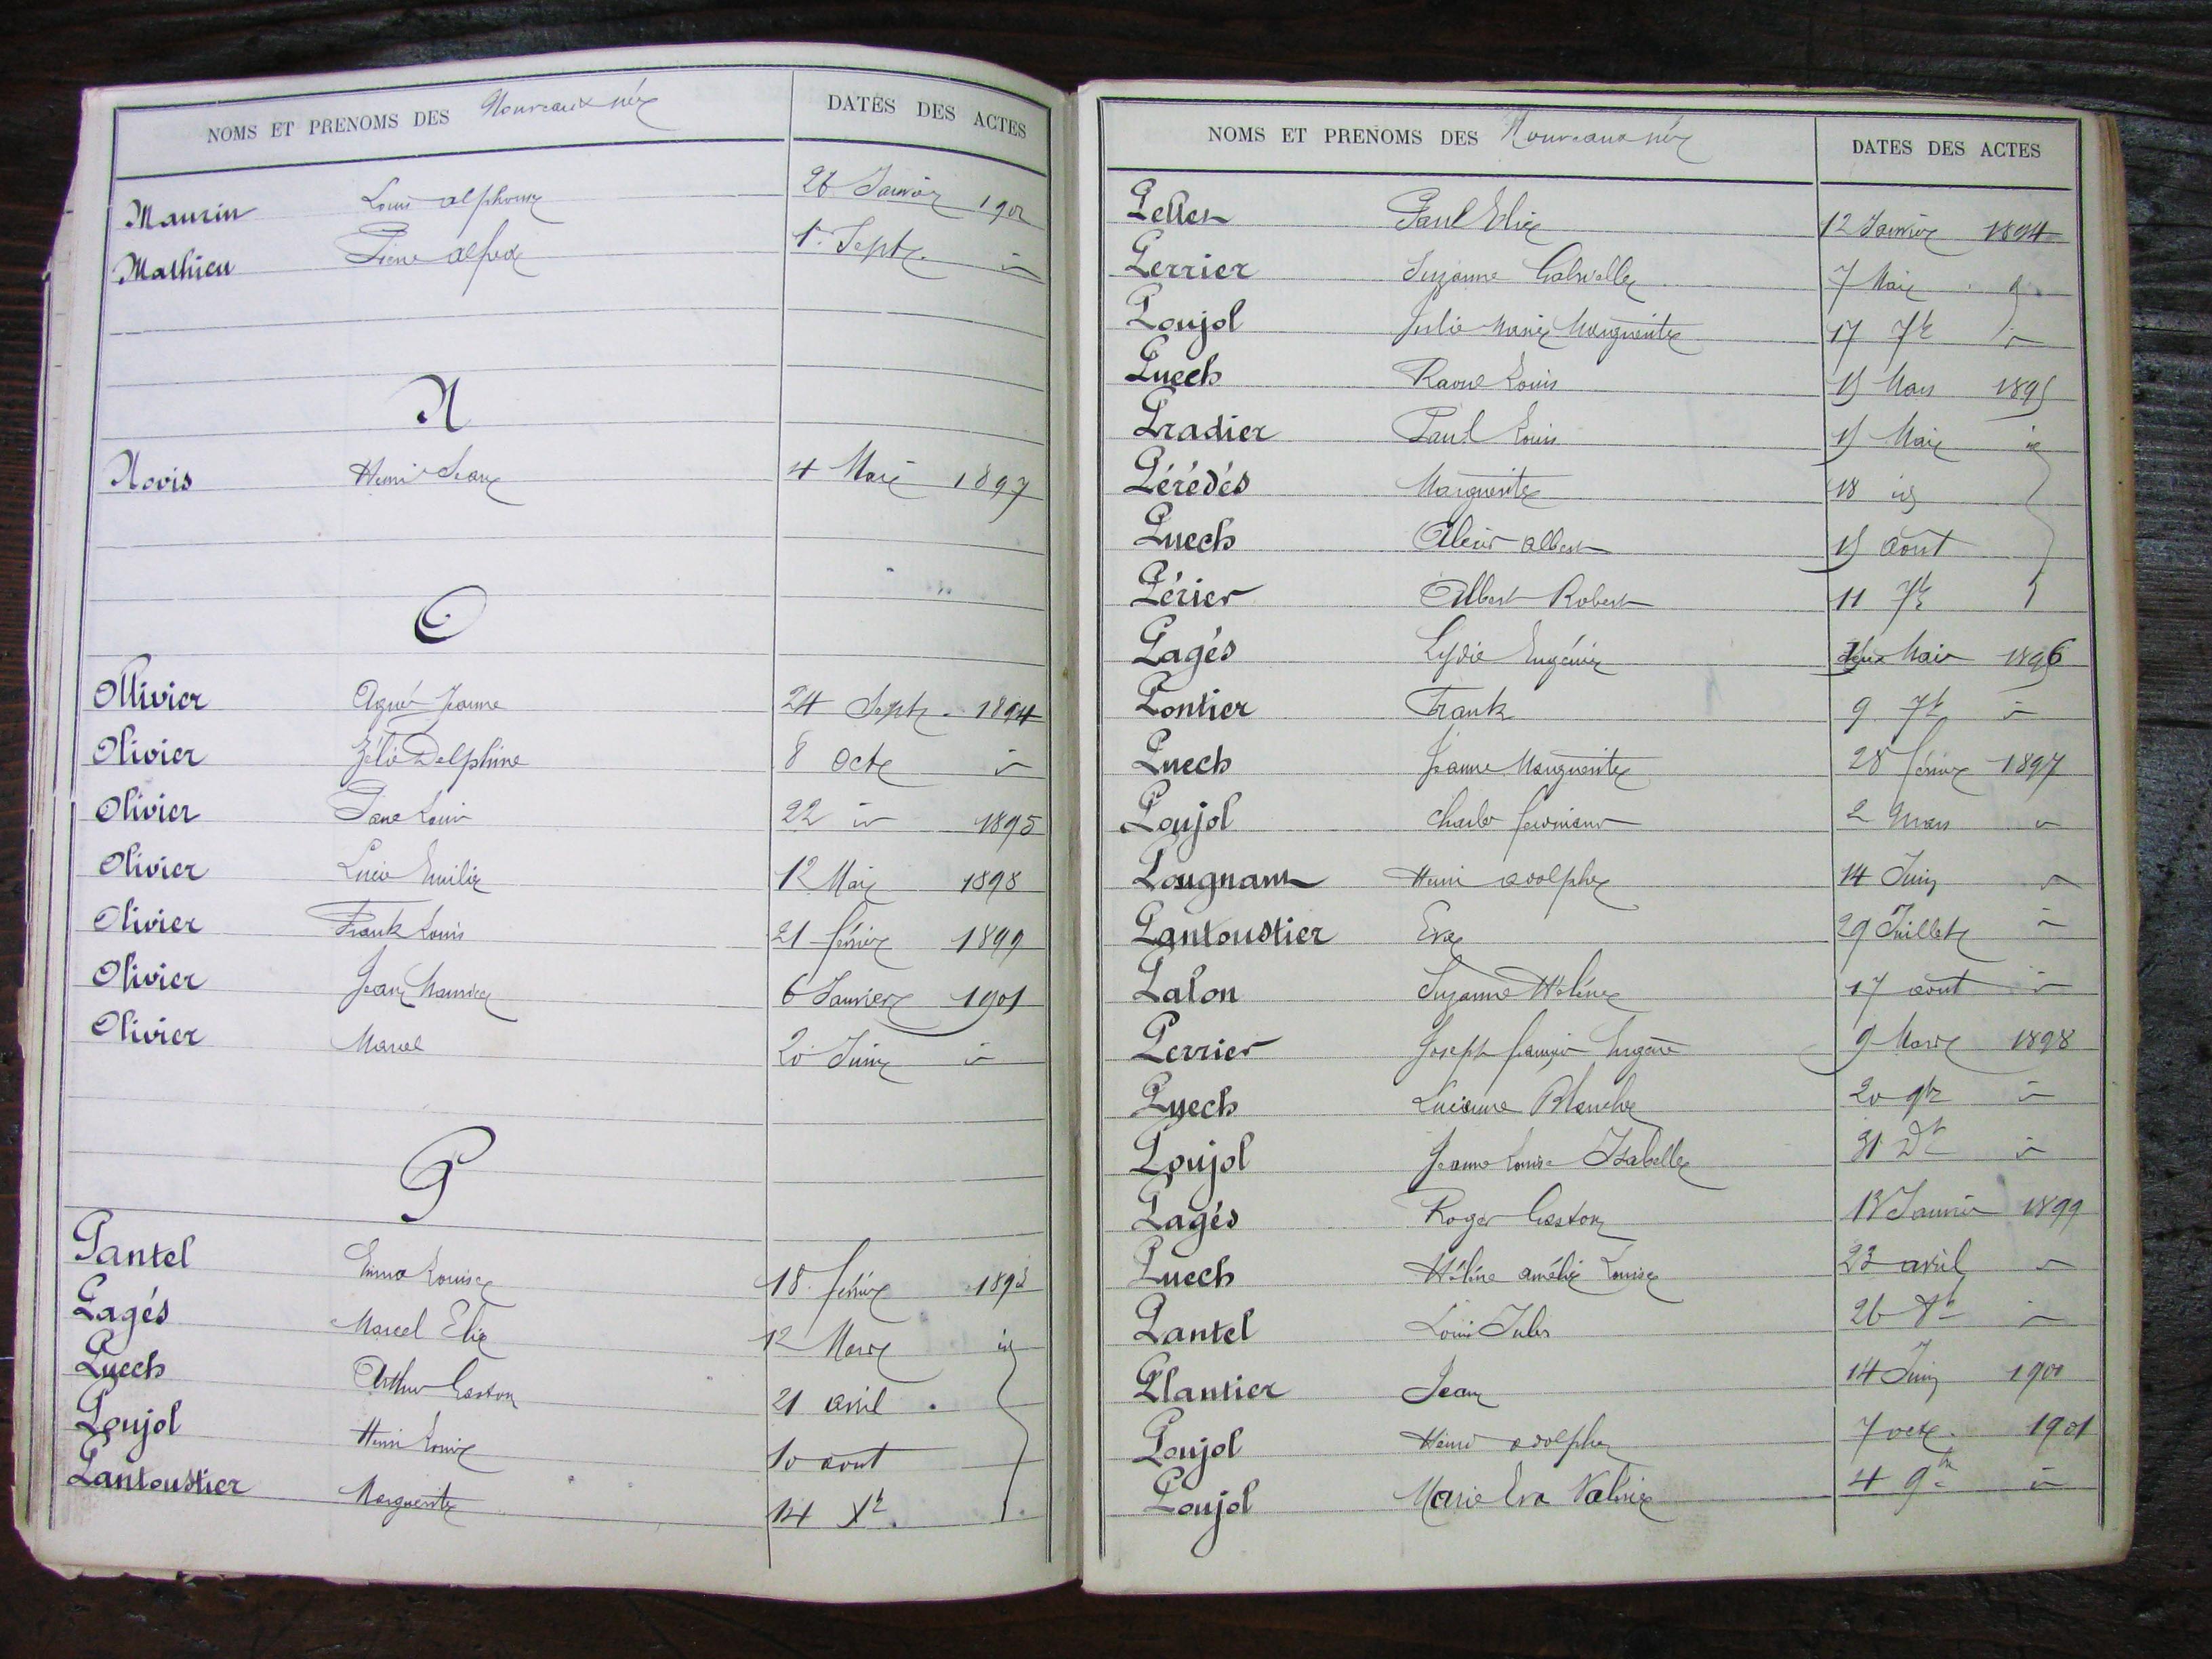 NOMS ET PRENOMS DES Nouveaux nés DATES DES ACTES
Maurin Louis alphonse 26 Janvier 1902
Mathieu Pierre alfred 1er Septe. id
N
Novis Henri Jean 4 Mai 1897
O
Ollivier Agnès Jeanne 24 Septe. 1894
Olivier Zélie Delphine 8 Octe id
Olivier Paul Louis 22 id 1895
Olivier Lucie Emilie 12 Mai 1898
Olivier Frank Louis 21 février 1899
Olivier Jean Maurice 6 Janvier 1901
Olivier Marcel 20 Juin id
P
Pantel Emma Louise 18 février 1893
Pagés Marcel Elie 12 Mars id
Puech Arthur Gaston 21 avril
Poujol Henri Louis 10 aout
Pantoustier Marguerite 14 Xbre
NOMS ET PRENOMS DES Nouveaux nés DATES DES ACTES
Pellet Paul Elie 12 Janvier 1894
Perrier Suzanne Gabrielle 7 Mai
Poujol Julie Marie Marguerite 17 7bre id
Puech Raoul Louis 15 Mars 1895
Pradier Paul Louis 15 Mai id
Pérédés Marguerite 18 id
Puech Albert 15 aout
Périer Albert Robert 11 7bre
Pagés Lydie Eugénie deux Mai 1896
Pontier Frank 9 7bre id
Puech Jeanne Marguerite 28 février 1897
Poujol Charles 2 Mars id
Pougnant Henri adolphe 14 Juin id
Pantoustier Eva 29 Juillet id
Palon Suzanne Hélène 17 aout id
Perrier Joseph françois Eugène 9 Mars 1898
Puech Lucienne Blanche 20 9bre id
Poujol Jeanne Louise Isabelle 31 Dbre id
Pagés Roger Gaston 13 Janvier 1899
Puech Hélène amélie Louise 23 avril id
Pantel Louis Jules 26 Xbre id
Plantier Jean 14 Juin 1900
Poujol Henri adolphe 7 octe. 1901
Poujol Marie Eva Valérie 4 9bre id